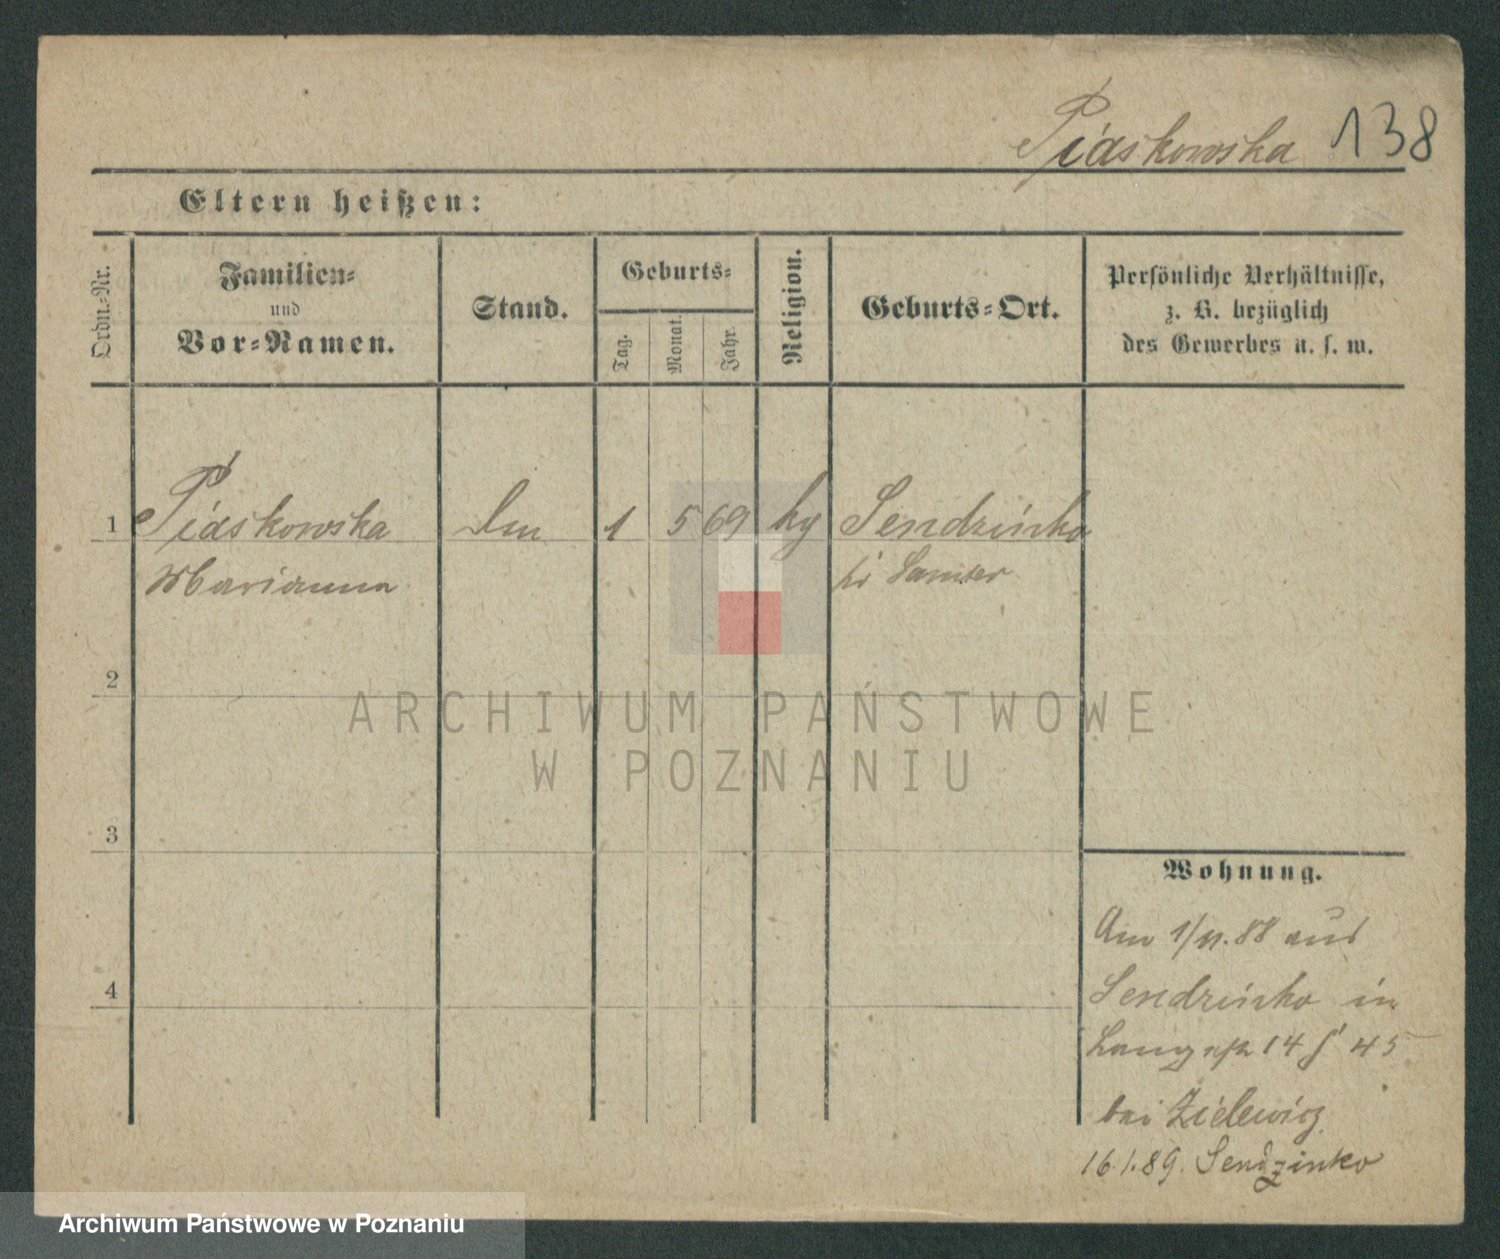 Piaskowska 138
Eltern heißen:
Ordn.-Nr.
Familien-
und
Vor-Namen.
Stand.
Geburts-
Tag.
Monat.
Jahr.
Religion.
Geburts-Ort.
Persönliche Verhältnisse,
z. B. bezüglich
des Gewerbes u. s. w.
1 Piaskowska 1 5 69 Sendzinko
Marianna Samter
2
3
4
Wohnung.
Am 1/11.88 aus
Sendzinko in
14
bei Zielewicz
16.1.89. Sendzinko
ARCHIWUM PAŃSTWOWE
W POZNANIU
Archiwum Państwowe w Poznaniu